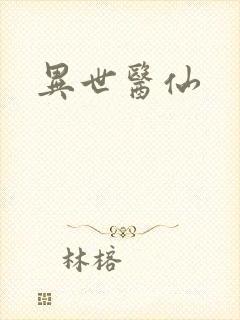 異世醫仙
林榕